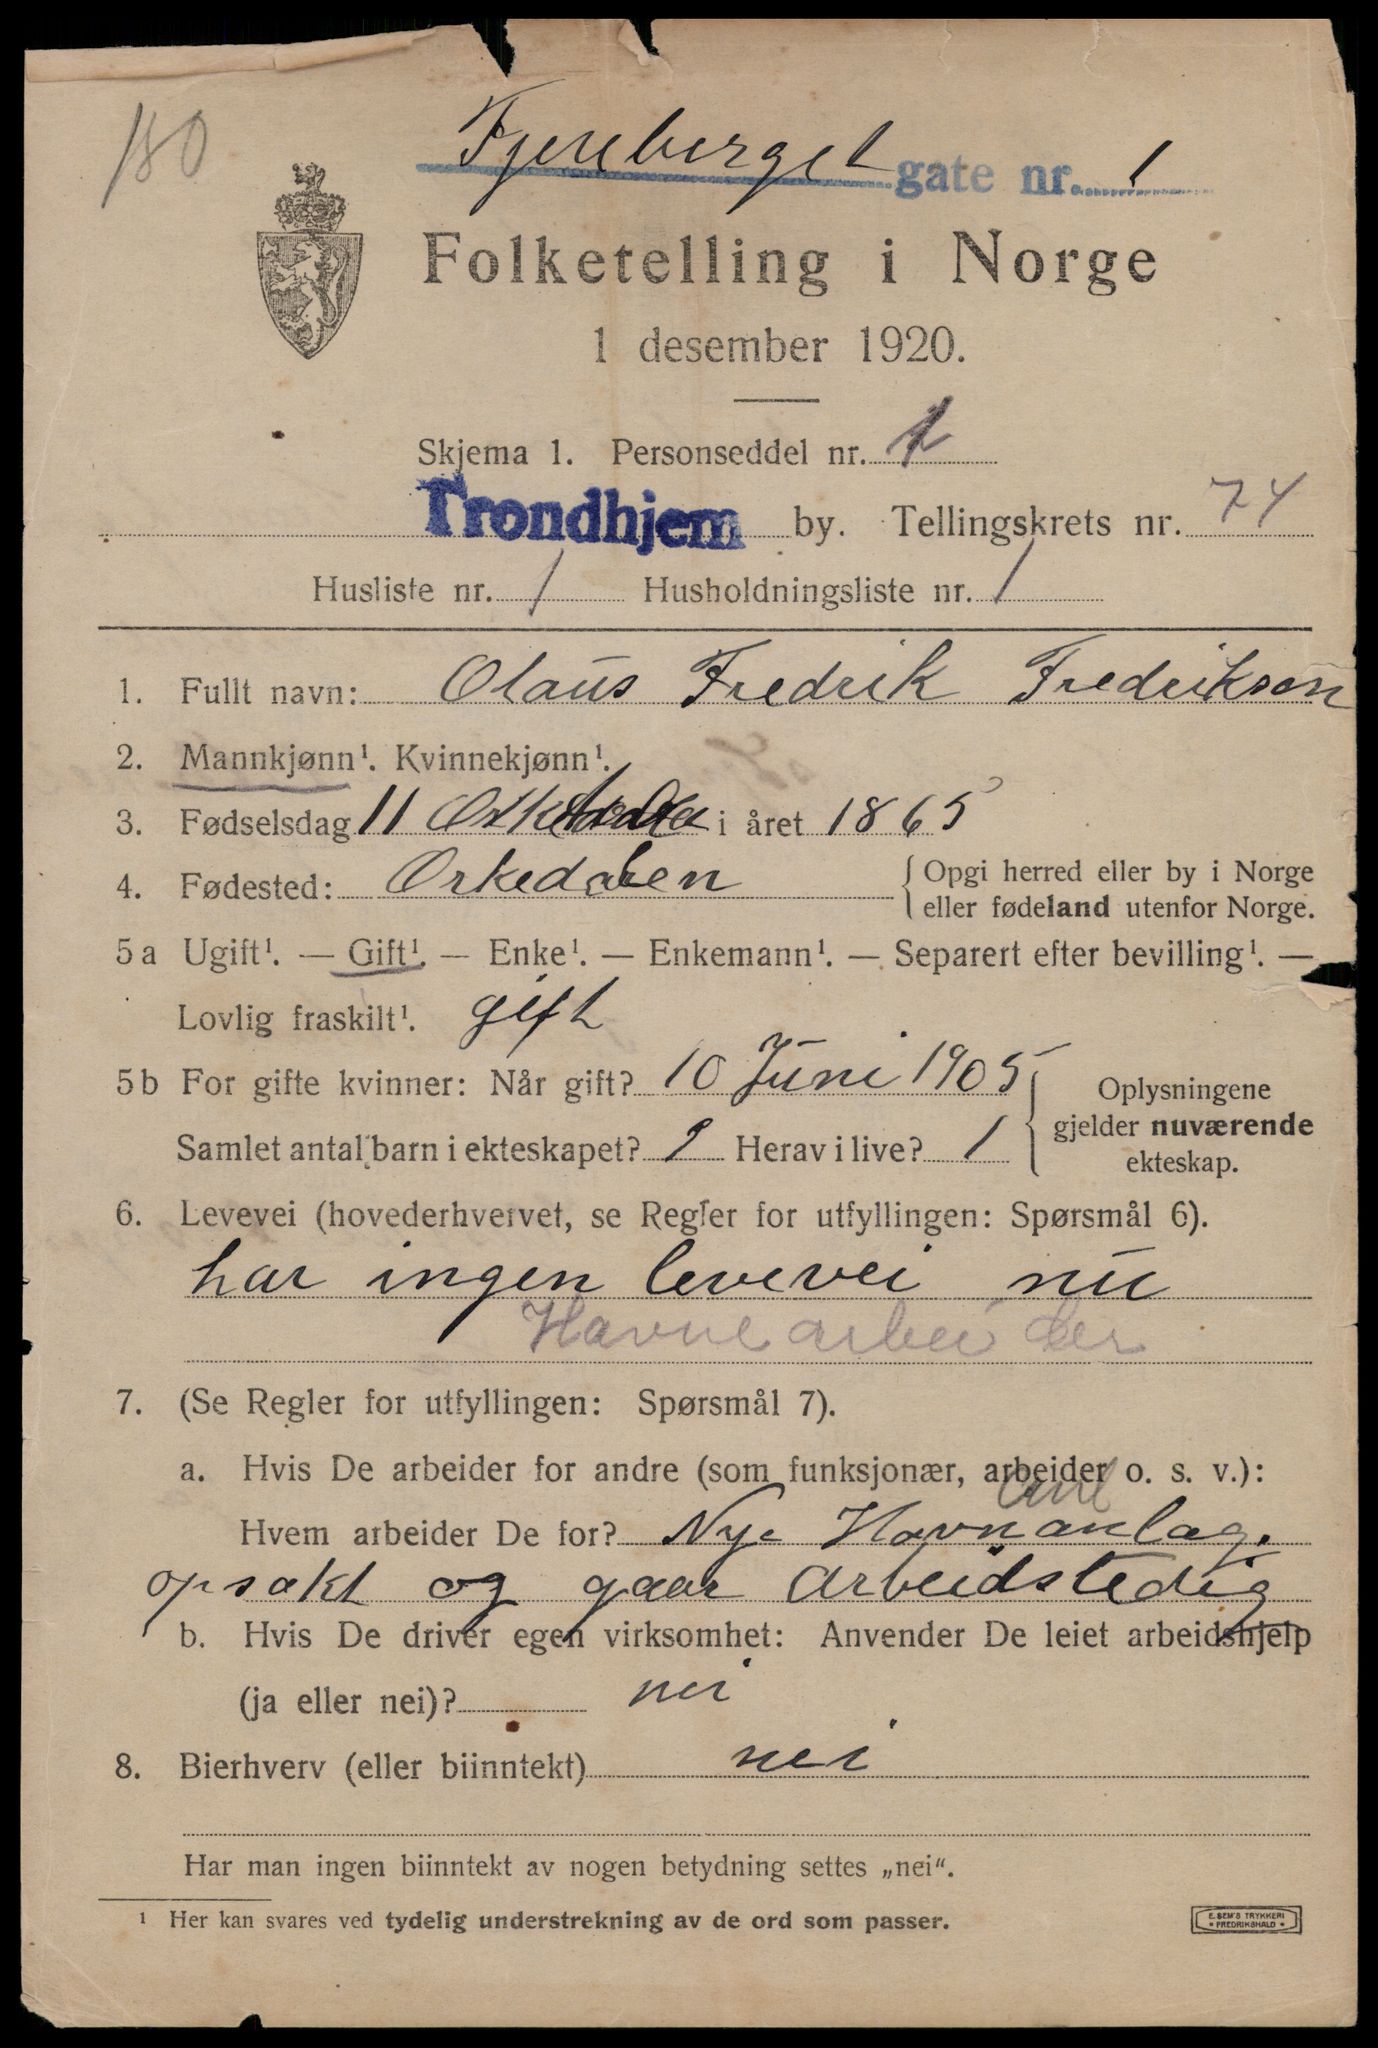 180
Fjereberget gate nr. 1
Folketelling i Norge
1 desember 1920.
Skjema 1. Personseddel nr. 1
Trondhjem by. Tellingskrets nr. 74
Husliste nr. 1 Husholdningsliste nr. 1
1. Fullt navn: Olaus Fredrik Fredrikson
2. Mannkjønn¹. Kvinnekjønn¹.
3. Fødselsdag 11 i året 1865
4. Fødested: Orkedalen { Opgi herred eller by i Norge
eller fødeland utenfor Norge.
5a Ugift¹. — Gift¹. — Enke¹. — Enkemann¹. — Separert efter bevilling¹. —
Lovlig fraskilt¹. gift
5b For gifte kvinner: Når gift? 10 Juni 1905
Samlet antal barn i ekteskapet? 9 Herav i live? 1
Oplysningene
gjelder nuværende
ekteskap.
6. Levevei (hovederhvervet, se Regler for utfyllingen: Spørsmål 6).
har ingen levevei nu
Havnearbeider
7. (Se Regler for utfyllingen: Spørsmål 7).
a. Hvis De arbeider for andre (som funksjonær, arbeider o. s. v.):
Hvem arbeider De for? Nye Havnanlag.
opsakt og gaar arbeidstedig
b. Hvis De driver egen virksomhet: Anvender De leiet arbeidshjelp
(ja eller nei)? nei
8. Bierhverv (eller biinntekt) nei
Har man ingen biinntekt av nogen betydning settes „nei“.
¹ Her kan svares ved tydelig understrekning av de ord som passer.
E. SEM'S TRYKKERI
FREDRIKSHALD